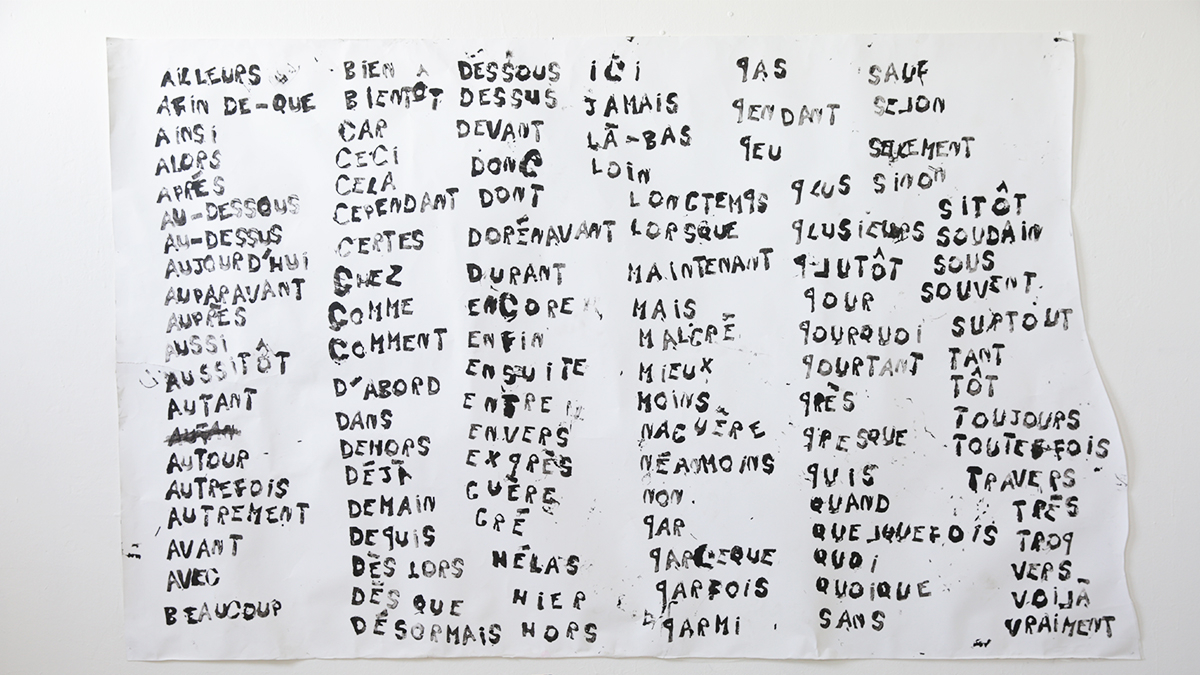 AILLEURS
AFIN DE-QUE
AINSI
ALORS
APRÈS
AU-DESSOUS
AU-DESSUS
AUJOURD'HUI
AUPARAVANT
AUPRÈS
AUSSI
AUSSITÔT
AUTANT
AUTAN
AUTOUR
AUTREFOIS
AUTREMENT
AVANT
AVEC
BEAUCOUP
BIEN
BIENTÔT
CAR
CECI
CELA
CEPENDANT
CERTES
CHEZ
COMME
COMMENT
D'ABORD
DANS
DEHORS
DÉJÀ
DEMAIN
DEPUIS
DÈS LORS
DÈS QUE
DÉSORMAIS
DÉSSOUS
DESSUS
DEVANT
DONC
DONT
DORÉNAVANT
DURANT
ENCORE
ENFIN
ENSUITE
ENTRE
ENVERS
EXPRÈS
GUÈRE
GRÉ
HÉLAS
HIER
HORS
ICI
JAMAIS
LÀ-BAS
LOIN
LONGTEMPS
LORSQUE
MAINTENANT
MAIS
MALGRÉ
MIEUX
MOINS
NAGUÈRE
NÉANMOINS
NON
PAR
PARCEQUE
PARFOIS
PARMI
PAS
PENDANT
PEU
PLUS
PLUSIEURS
PLUTÔT
POUR
POURQUOI
POURTANT
PRÈS
PRESQUE
PUIS
QUAND
QUELQUEFOIS
QUOI
QUOIQUE
SANS
SAUF
SELON
SEULEMENT
SINON
SITÔT
SOUDAIN
SOUS
SOUVENT
SURTOUT
TANT
TÔT
TOUJOURS
TOUTES-FOIS
TRAVERS
TRÈS
TROP
VERS
VOILÀ
VRAIMENT